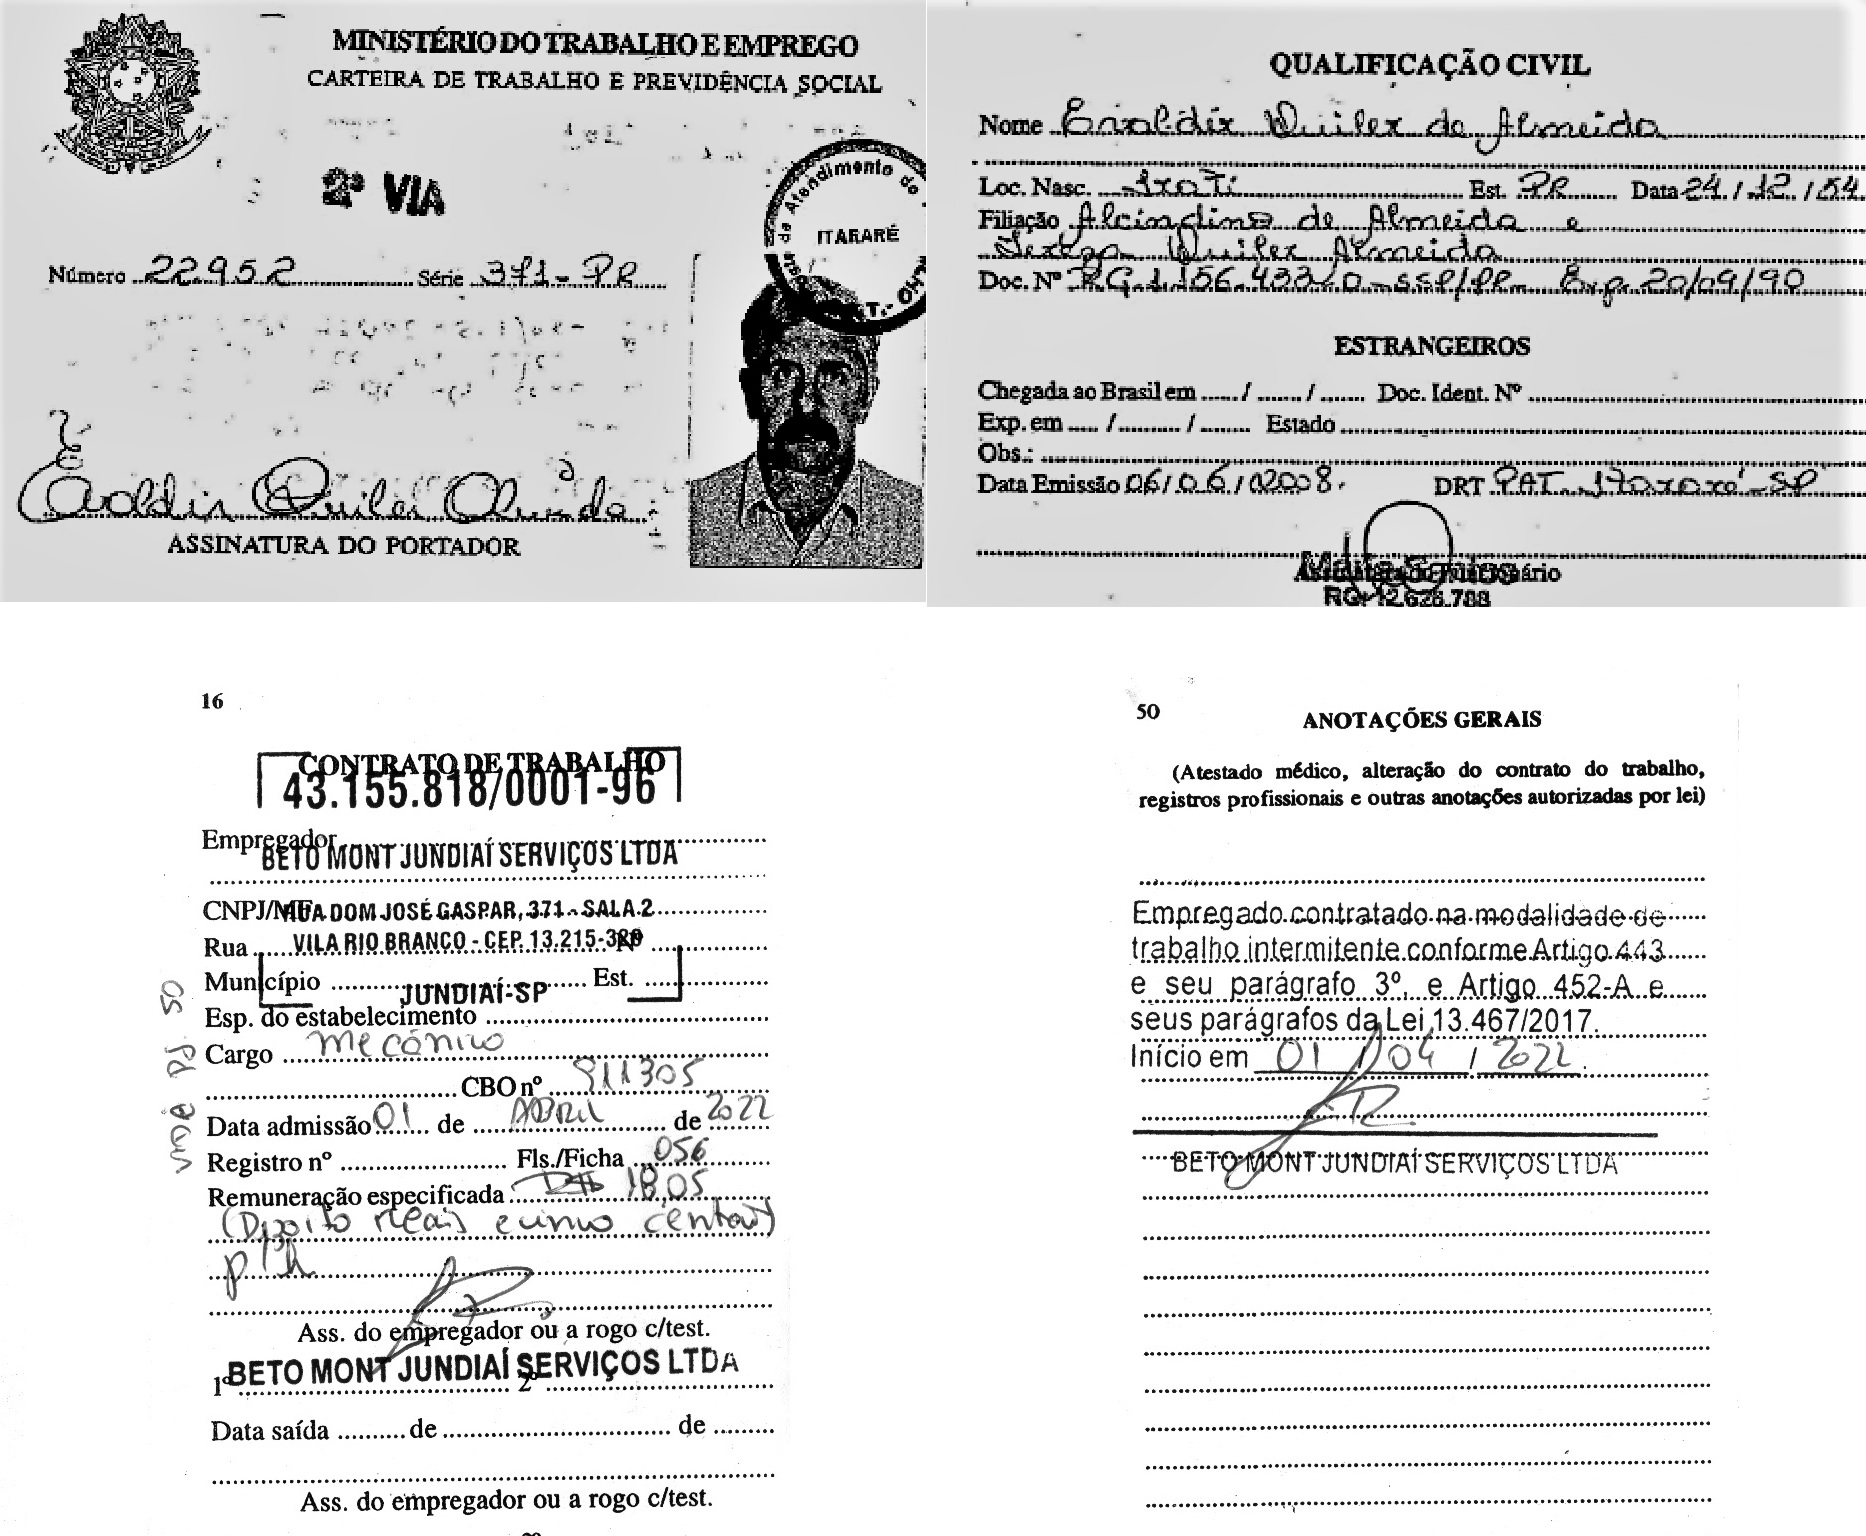 MINISTÉRIO DO TRABALHO E EMPREGO
CARTEIRA DE TRABALHO E PREVIDÊNCIA SOCIAL
2ª VIA
de Atendimento do
ITARARÉ
Número 22952 Série 371-PR
ASSINATURA DO PORTADOR
QUALIFICAÇÃO CIVIL
Nome Eraldir Quiler de Almeida
Loc. Nasc. Irati Est. PR Data 24/12/54
Filiação Alcindino de Almeida e
Quiler Almeida
Doc. Nº RG.1.156.433-0-SSP/PR Exp. 20/09/90
ESTRANGEIROS
Chegada ao Brasil em ...... / ....... / ....... Doc. Ident. Nº
Exp. em ..... / .......... / ........ Estado
Obs.:
Data Emissão 06/06/2008. DRT PAT -SP
RG: 12.628.788
16
CONTRATO DE TRABALHO
43.155.818/0001-96
Empregador
BETO MONT JUNDIAÍ SERVIÇOS LTDA
CNPJ/MF RUA DOM JOSÉ GASPAR, 371 - SALA 2
Rua VILA RIO BRANCO - CEP. 13.215-320 Nº
Município Est.
JUNDIAÍ-SP
Esp. do estabelecimento
Cargo mecânico
CBO nº 911305
Data admissão 01 de ABRIL de 2022
Registro nº Fls./Ficha 056
Remuneração especificada R$ 18,05
(Dezoito reais e cinco centavos)
p/h
Ass. do empregador ou a rogo c/test.
BETO MONT JUNDIAÍ SERVIÇOS LTDA
1º 2º
Data saída .......... de .................................. de .........
Ass. do empregador ou a rogo c/test.
2º
vide pg 50
50
ANOTAÇÕES GERAIS
(Atestado médico, alteração do contrato do trabalho,
registros profissionais e outras anotações autorizadas por lei)
Empregado contratado na modalidade de
trabalho intermitente conforme Artigo 443
e seu parágrafo 3º, e Artigo 452-A e
seus parágrafos da Lei 13.467/2017.
Início em 01 / 04 / 2022.
BETO MONT JUNDIAÍ SERVIÇOS LTDA